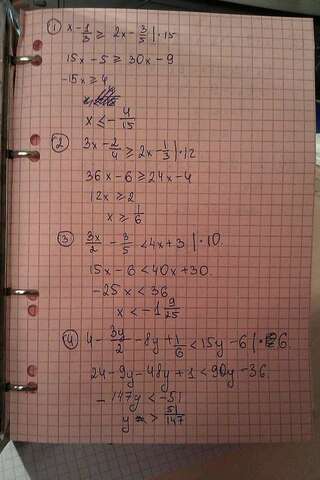 1) x - 1/3 ≥ 2x - 3/5 | · 15
15x - 5 ≥ 30x - 9
-15x ≥ 4
x ≤ - 4/15
2) 3x - 2/4 ≥ 2x - 1/3 | · 12
36x - 6 ≥ 24x - 4
12x ≥ 2
x ≥ 1/6
3) 3x/2 - 3/5 < 4x + 3 | · 10
15x - 6 < 40x + 30
-25x < 36
x < -1 9/25
4) 4 - 3y/2 - 8y + 1/6 < 15y - 6 | · 6
24 - 9y - 48y + 1 < 90y - 36
-147y < -51
y > 51/147